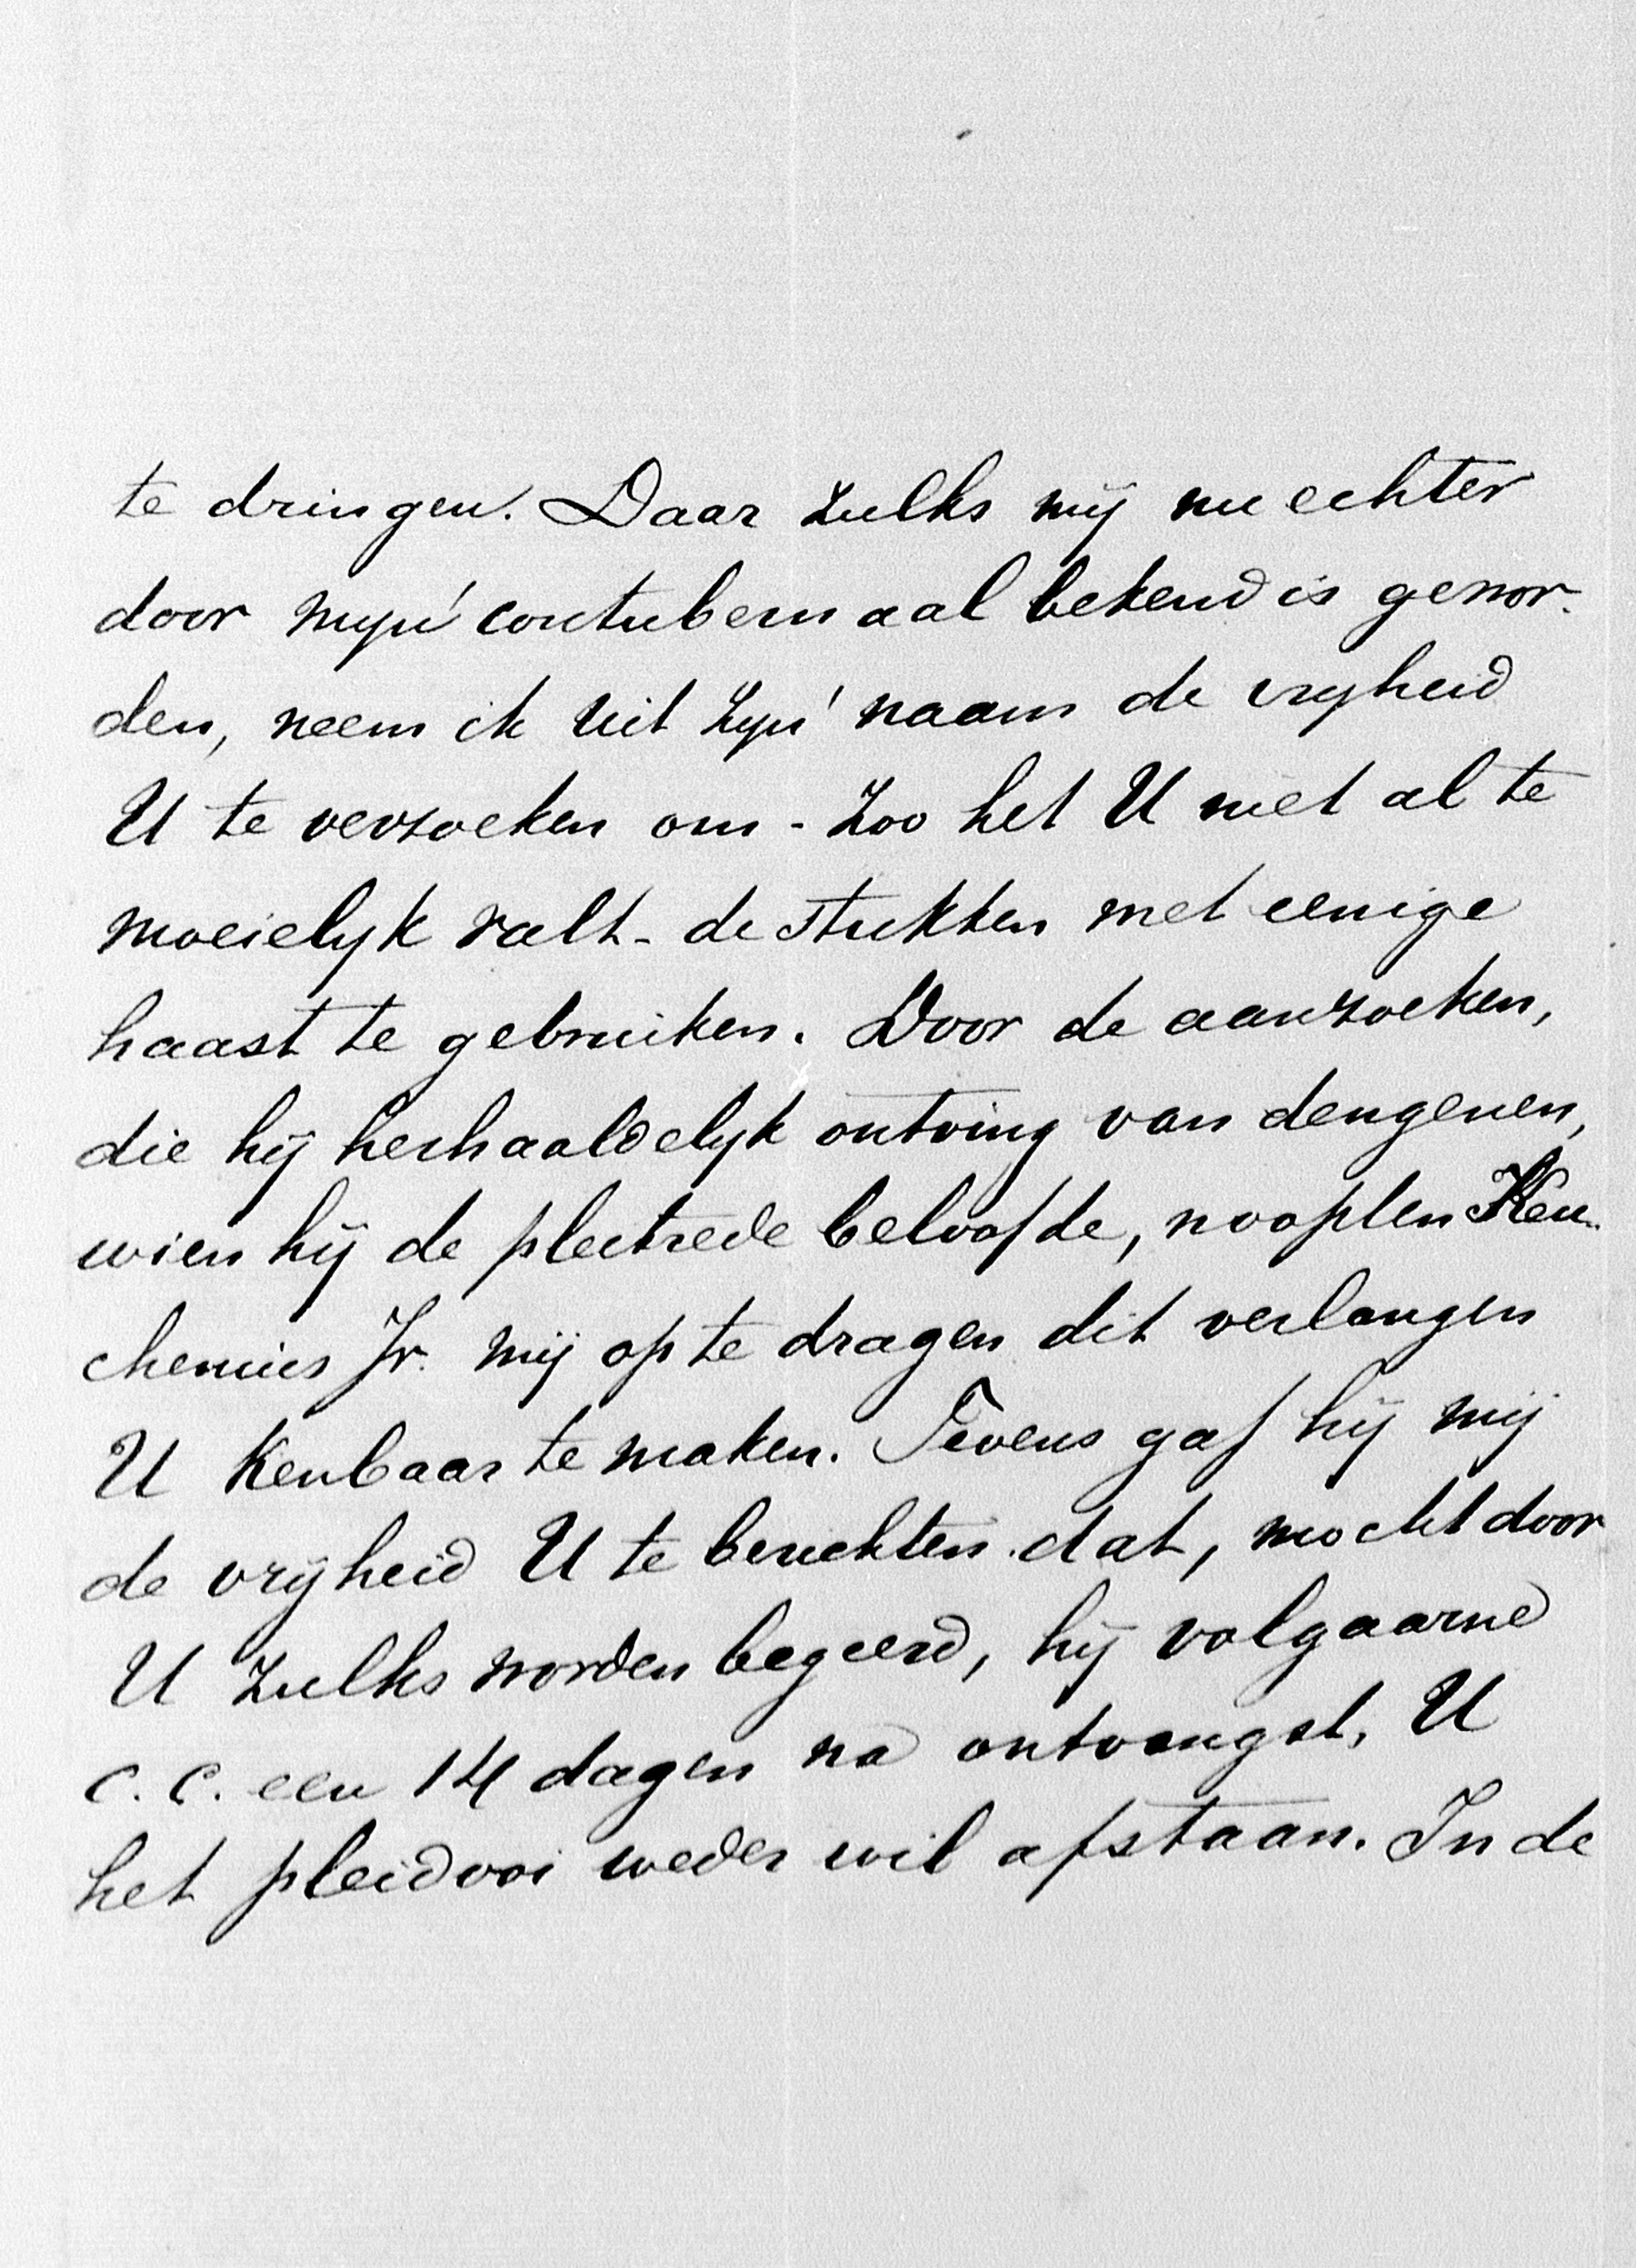 te dringen. Daar zulks mij nu echter
door mijn contubernaal bekend is gewor-
den, neem ik uit zijn naam de vrijheid
U te verzoeken om - zoo het U niet al te
moeielijk valt - de stukken met eenige
haast te gebruiken. Door de aanzoeken,
die hij herhaaldelijk ontving van dengenen,
wien hij de pleitrede beloofde, noopten Keu-
chenius Jr. mij op te dragen dit verlangen
U kenbaar te maken. Tevens gaf hij mij
de vrijheid U te berichten dat, mocht door
U zulks worden begeerd, hij volgaarne
c.c. een 14 dagen na ontvangst, U
het pleidooi weder wil afstaan. In de